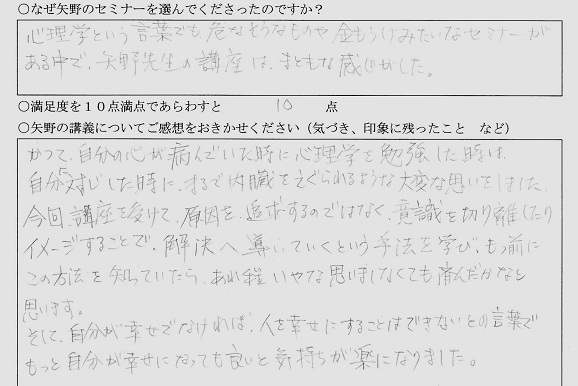 ○なぜ矢野のセミナーを選んでくださったのですか？
心理学という言葉でも、危なそうなものや金もうけみたいなセミナーが
ある中で、矢野先生の講座は、まともな感じがした。
○満足度を１０点満点であらわすと　10　点
○矢野の講義についてご感想をおきかせください（気づき、印象に残ったこと　など）
かつて、自分の心が病んでいた時に心理学を勉強した時は、
自分と対じした時に、まるで内臓をえぐられるような大変な思いをしました。
今回、講座を受けて、原因を追求するのではなく、意識を切り離したり
イメージすることで、解決へ導いていくという手法を学び、もっと前に
この方法を知っていたら、あれ程いやな思いをしなくても済んだかなと
思います。
そして、自分が幸せでなければ、人を幸せにすることはできないとの言葉で
もっと自分が幸せになっても良いと気持ちが楽になりました。